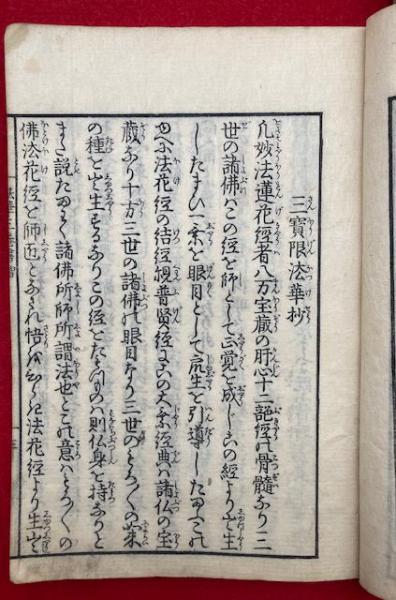 三寶限法華抄
凡妙法蓮花經者八万宝蔵の肝心十二部經の骨髓なり三
世の諸佛ハこの經を師として正覚を成し の經より出生
したまひ一乘を眼目として衆生を引導したまふされ
法花經の結經観普賢經にこの大乘經典ハ諸仏の宝
蔵なり十方三世の諸佛の眼目なり三世のもろ〱の如来
の種を出生するなりこの經をたもつものハ則仏身を持なりと
また説たまハく諸佛所師所謂法也とこの意ハもろ〱の
佛法花經を師匠となされ悟 法花經より生出